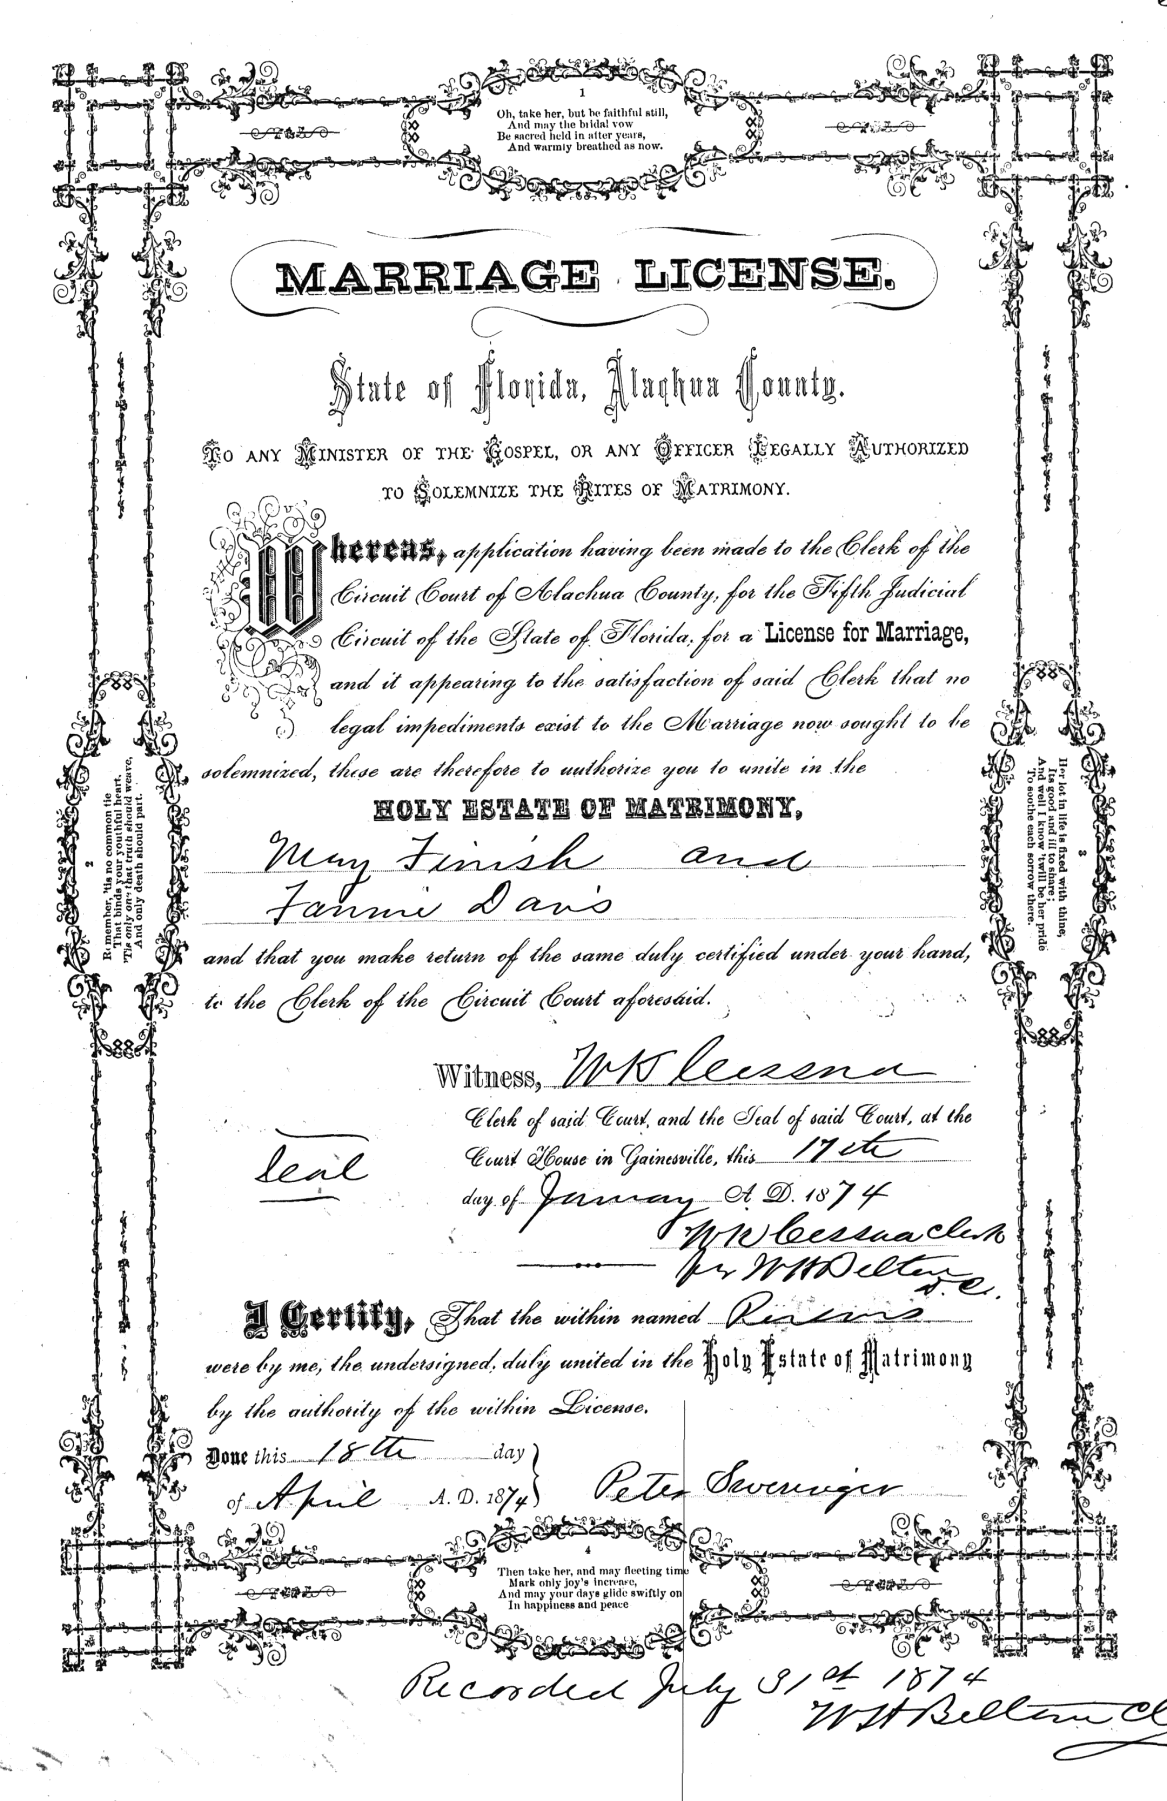 1
Oh, take her, but be faithful still,
And may the bridal vow
Be sacred held in after years,
And warmly breathed as now.
MARRIAGE LICENSE.
State of Florida, Alachua County.
TO ANY MINISTER OF THE GOSPEL, OR ANY OFFICER LEGALLY AUTHORIZED
TO SOLEMNIZE THE RITES OF MATRIMONY.
Whereas, application having been made to the Clerk of the
Circuit Court of Alachua County, for the Fifth Judicial
Circuit of the State of Florida, for a License for Marriage,
and it appearing to the satisfaction of said Clerk that no
legal impediments exist to the Marriage now sought to be
solemnized, these are therefore to authorize you to unite in the
HOLY ESTATE OF MATRIMONY,
May Finish and
Fannie Davis
and that you make return of the same duly certified under your hand,
to the Clerk of the Circuit Court aforesaid.
Witness, W K Cessna
Clerk of said Court, and the Seal of said Court, at the
Court House in Gainesville, this 17th
day of January A. D. 1874
Seal
W K Cessna Clerk
per W H Belton
D. C.
I Certify, That the within named Persons
were by me, the undersigned, duly united in the Holy Estate of Matrimony
by the authority of the within License.
Done this 18th day
of April A. D. 1874
Peter Sweringer
2
Remember, 'tis no common tie
That binds your youthful heart.
'Tis only one that truth should weave,
And only death should part.
3
Her lot in life is fixed with thine,
Its good and ill to share;
And well I know 'twill be her pride
To soothe each sorrow there.
4
Then take her, and may fleeting time
Mark only joy's increase,
And may your days glide swiftly on
In happiness and peace
Recorded July 31st 1874
W H Belton Cl